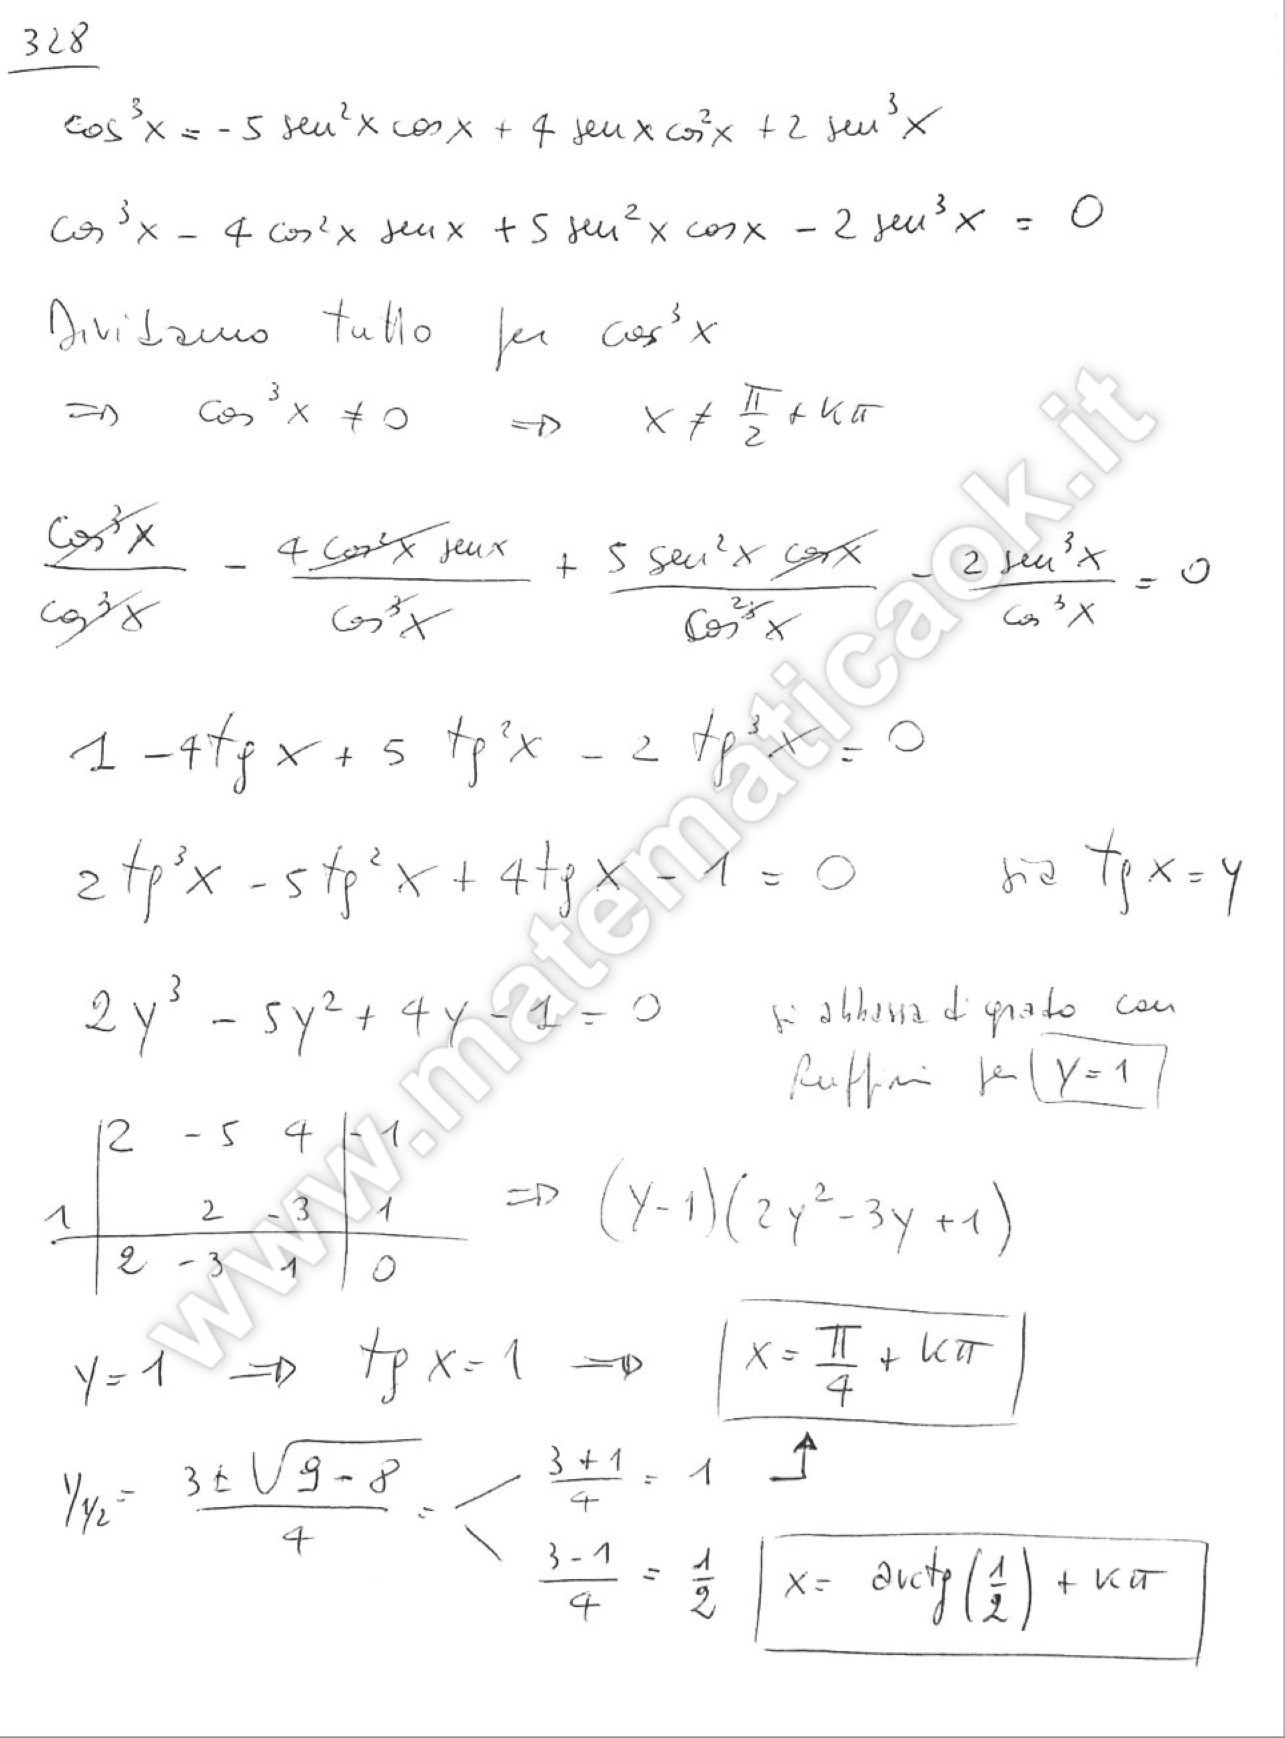 328
cos³x = -5 sen²x cosx + 4 senx cos²x + 2 sen³x
cos³x - 4 cos²x senx + 5 sen²x cosx - 2 sen³x = 0
Dividiamo tutto per cos³x
=> cos³x ≠ 0 => x ≠ π/2 + kπ
cos³x/cos³x - 4 cos²x senx/cos³x + 5 sen²x cosx/cos³x - 2 sen³x/cos³x = 0
1 - 4tg x + 5 tg²x - 2 tg³x = 0
2tg³x - 5tg²x + 4tg x - 1 = 0 sia tg x = y
2y³ - 5y² + 4y - 1 = 0 si abbassa di grado con
Ruffini per y=1
2 -5 4 -1
1 2 -3 1 => (y-1)(2y²-3y+1)
2 -3 1 0
y=1 => tg x = 1 => x = π/4 + kπ
y₁/₂ = (3±√(9-8))/4 = (3+1)/4 = 1
(3-1)/4 = 1/2 x = arctg(1/2) + kπ
www.matematicaok.it